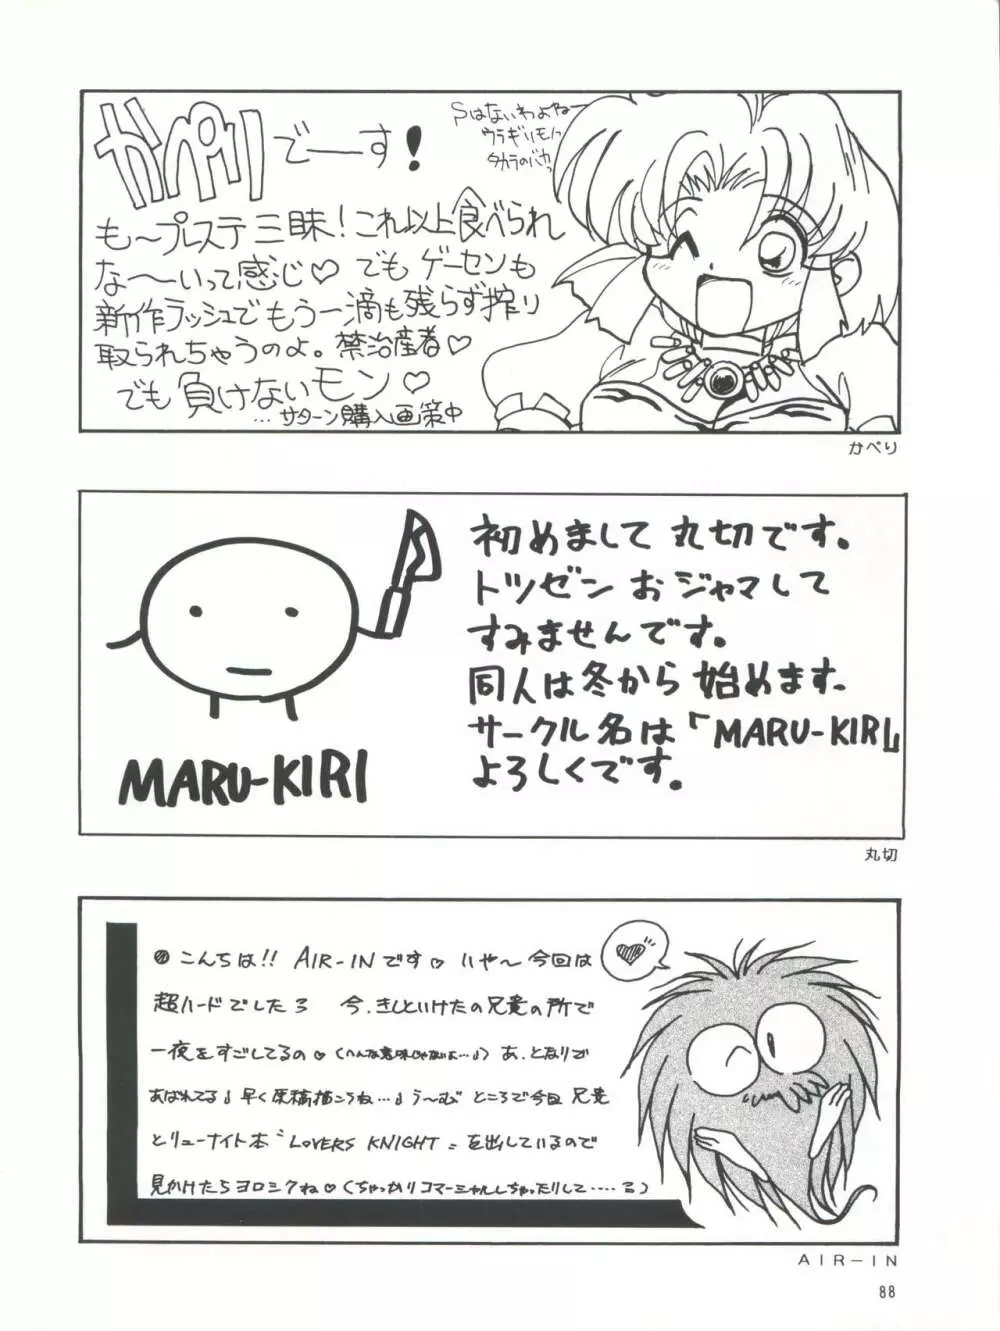 かぺりでーす!
Sはないわよねー
ウラギリモノっ
タカラのバカっ
も〜プレステ三昧!これ以上食べられ
な〜いって感じ♡でもゲーセンも
新作ラッシュでもう一滴も残らず搾り
取られちゃうのよ。禁治産者♡
でも負けないモン♡
…サターン購入画策中
かぺり
初めまして丸切です。
トツゼンおジャマして
すみませんです。
同人は冬から始めます。
サークル名は「MARU-KIRI」
よろしくです。
MARU-KIRI
丸切
こんちは!! AIR-INです♡いや〜今回は
超ハードでした３ 今、きしといけたの兄貴の所で
一夜をすごしてるの♡(へんな意味じゃないよ…♪)あ、となりで
あばれてる♪早く原稿描こうね…♪う〜むところで今回兄貴
とリューナイト本〝LOVERS KNIGHT〟を出しているので
見かけたらヨロシクね♡(ちゃっかりコマーシャルしちゃったりして……３)
AIR-IN
88